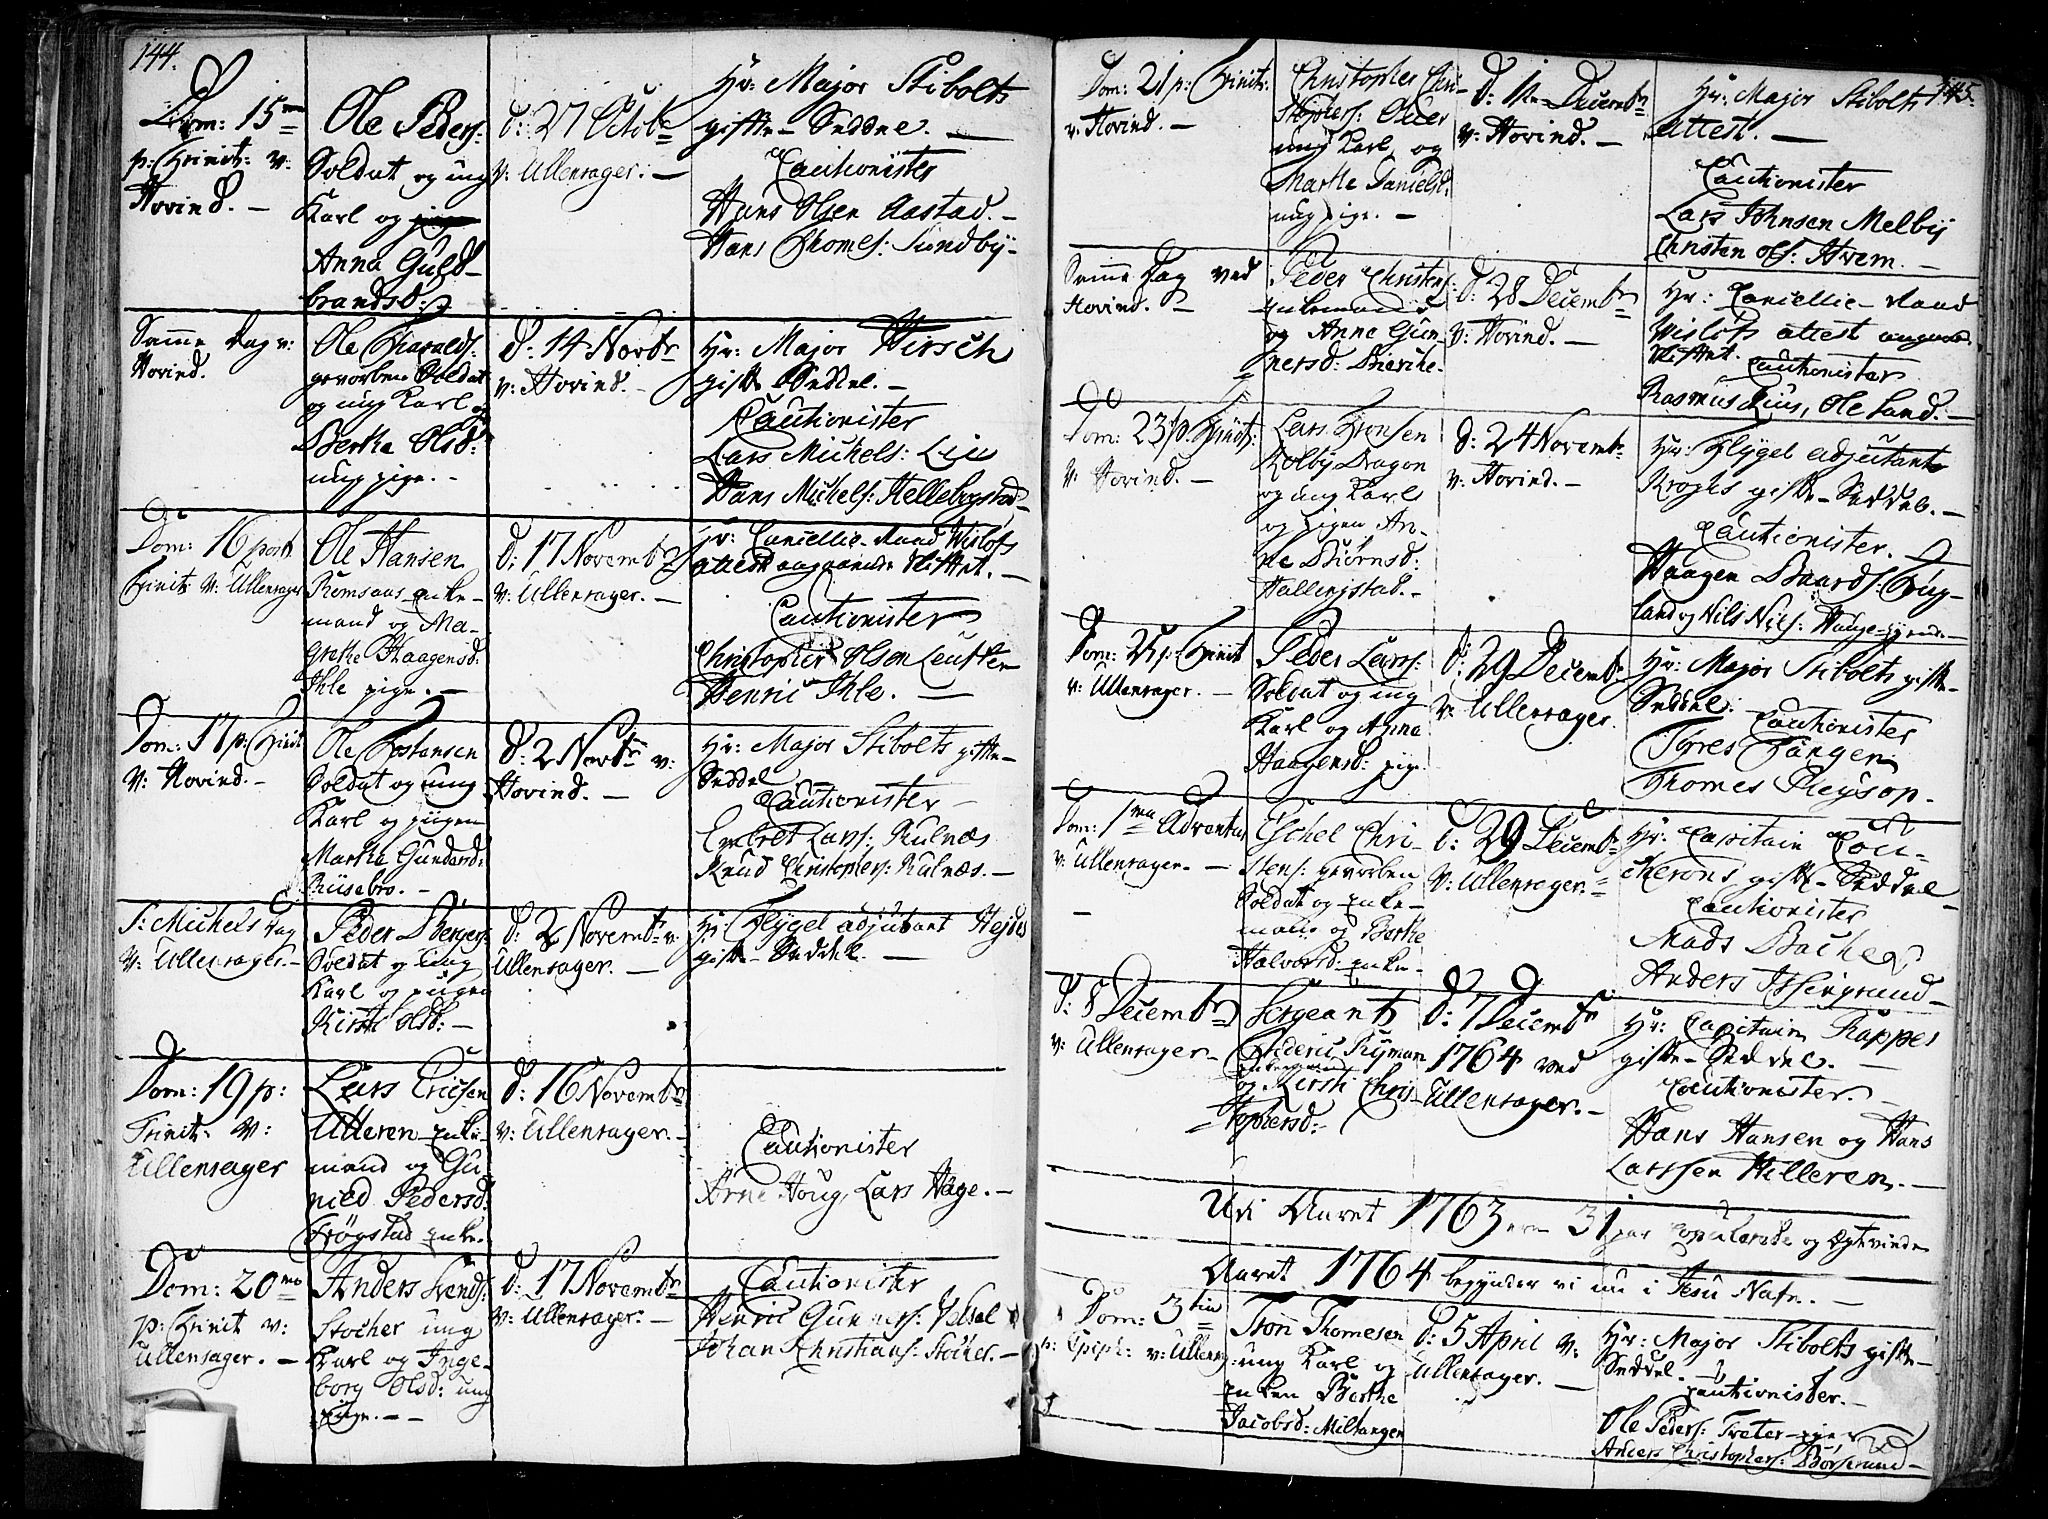 144.
Dom: 15me
p: Trinit: v:
Hovind. —
Ole Peders:
Soldat og ung
Karl og pige
Anna Guld-
brandsd:
d: 27 Octobr
v: Ullensager. —
Hr: Major Stibolts
gifte-Seddel. —
Cautionister
Hans Olsen Aastad. —
Hans Thomes: Sundby —
Samme Dag v:
Hovind.
Ole Haralds:
gevorben Soldat
og ung Karl og
Berthe Olsd:
ung pige. —
d: 14 Novbr
v: Hovind. —
Hr: Major Hirsch
gifte Seddel. —
Cautionister
Lars Michels: Lie
Hans Michels:
Dom: 16 post
Trinit: v: Ullensager
Ole Hansen
Romsaas enke-
mand og Ma-
grethe Haagensd:
Ihle pige. —
d: 17 Novembr
v: Ullensager. —
Hr: Cancellie-Raad Wisløfs
attest angaaende Skiftet. —
Cautionister
Christopher Olsen
Henric Ihle. —
Dom: 17 p: Trinit
v: Hovind. —
Ole Tostensen
Soldat og ung
Karl og pigen
Martha Gundersd:
Riisebro. —
d: 2 Novbr v:
Hovind. —
Hr: Major Stibolts gifte-
Seddel —
Cautionister —
Embret Lars: Kulnæs
Knud Christophers: Kulnæs. —
S: Michels Dag
v: Ullensager. —
Peder Bergers:
Soldat og ung
Karl og pigen
Kirsti Olsd: —
d: 2 Novembr v:
Ullensager. —
Hr: Flygel adjutant
gifte-Seddel. —
Dom: 19 p:
Trinit: v:
Ullensager
Lars Ericsen
Ulleren enke-
mand og Gu-
nild Pedersd:
Frøgstad enke.
d: 16 Novembr
v: Ullensager. —
Cautionister
Arne Houg, Lars Hage. —
Dom: 20mo
p: Trinit v:
Ullensager. —
Anders Svends:
Stocher ung
Karl og Inge-
borg Olsd: ung
pige. —
d: 17 Novembr
v: Ullensager. —
Cautionister
Henric Gunners:
Johan Christians: Stocher. —
145.
Dom: 21 p: Trinit:
v: Hovind. —
Christopher Chri-
stophers:
ung Karl og
Marthe Danielsd:
ung pige. —
d: 11 Decembr
v: Hovind. —
Hr: Major Stibolts
Attest. —
Cautionister
Lars Johnsen Melby
Christen Ols: Hvem. —
Samme Dag ved
Hovind. —
Peder Christens:
enkemand
og Anne Gun-
nersd:
d: 28 Decembr
v: Hovind. —
Hr: Cancellie-Raad
Wisløfs attest angaaende
Skiftet.
Cautionister
Rasmus Riis, Ole Sand. —
Dom: 23 p: Trinit:
v: Hovind. —
Lars Tronsen
Kolby Dragon
og ung Karl
og pigen An-
ne Biørnsd:
Hallingstad. —
d: 24 Novembr
v: Hovind. —
Hr: Flygel adjutant
Kroghs gifte-Seddel. —
Cautionister.
Haagen Baards:
land og Nils Nils:
Dom: 25 p: Trinit
v: Ullensager. —
Peder Larss:
Soldat og ung
Karl og Anna
Haagensd: pige.
d: 29 Decembr
v: Ullensager.
Hr: Major Stibolts gifte-
Seddel.
Cautionister
Tyres Tangen
Thomes
Dom: 1ma Adventus
v: Ullensager. —
Eschel Chri-
stens: gevorben
Soldat og enke-
mand og Berthe
Halvorsd: enke.
d: 29 Decembr
v: Ullensager.
Hr: Capitain Cou-
cherons gifte-Seddel
Cautionister
Mads Bache
Anders
d: 8 Decembr
v: Ullensager —
Sergeant
Frideric Ryman
enkemand
og Kirsti Chris-
stophersd:
d: 7 Decembr
1764 ved
Ullensager. —
Hr: Capitain Kappes
gifte-Seddel. —
Cautionister. —
Hans Hansen og Hans
Larssen Hilleren. —
Udi Aaret 1763 ere 31 par copulerede og Egteviede
Aaret 1764 begynder vi nu i Jesu Nafn. —
Dom: 3tia
p: Epiph: v: Ullensag
Tron Thomesen
ung Karl og
enken Berthe
Jacobsd: Miltangen
d: 5 April v:
Ullensager. —
Hr: Major Stibolts gifte-
Seddel.
Cautionister. —
Ole Peders: Træter-
Anders Christophers: Børserud —